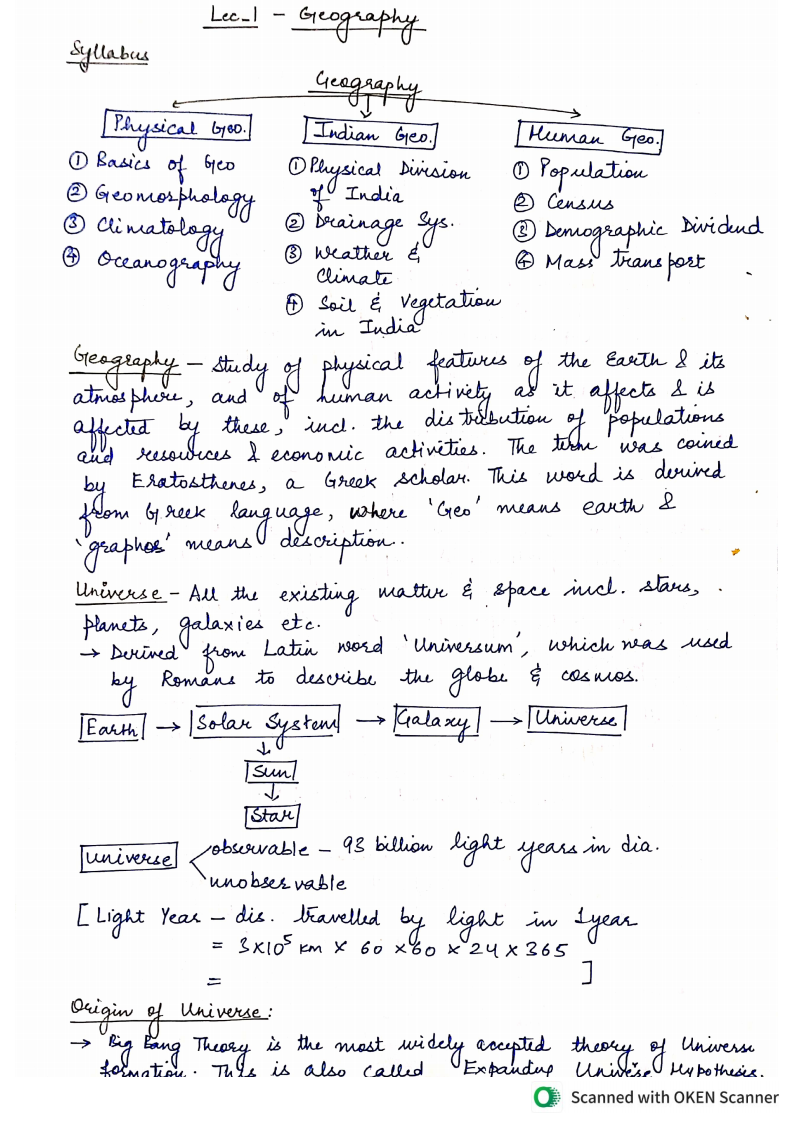 Lec_1 - Geography
Syllabus
Geography
Physical Geo.
① Basics of Geo
② Geomosphology
③ Climatology
④ Oceanography
Indian Geo.
① Physical Division
of India
② Drainage Sys.
③ Weather &
Climate
④ Soil & Vegetation
in India
Human Geo.
① Population
② Census
③ Demographic Dividend
④ Mass transport
Geography - Study of physical features of the Earth & its
atmosphere, and of human activety as it affects & is
affected by these, incl. the distribution of populations
and resources & economic activeties. The term was coined
by Eratosthenes, a Greek scholar. This word is derived
from Greek language, where 'Geo' means earth &
'graphos' means description.
Universe - All the existing matter & space incl. stars,
planets, galaxies etc.
→ Derived from Latin word 'Universum', which was used
by Romans to describe the globe & cosmos.
Earth → Solar System → Galaxy → Universe
↓
Sun
↓
Star
Universe
observable - 93 billion light years in dia.
unobservable
[Light Year - dis. travelled by light in 1 year
= 3x10⁵ km x 60 x 60 x 24 x 365
= ]
Origin of Universe:
→ Big Bang Theory is the most widely accepted theory of Universe
formation. This is also called Expanding Universe Hypothesis.
Scanned with OKEN Scanner